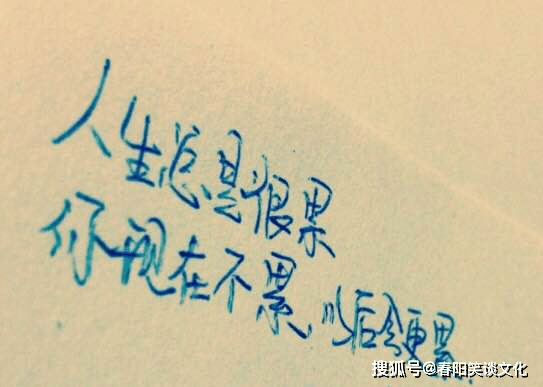 人生总是很累
你现在不累以后会更累
搜狐号@春阳笑谈文化